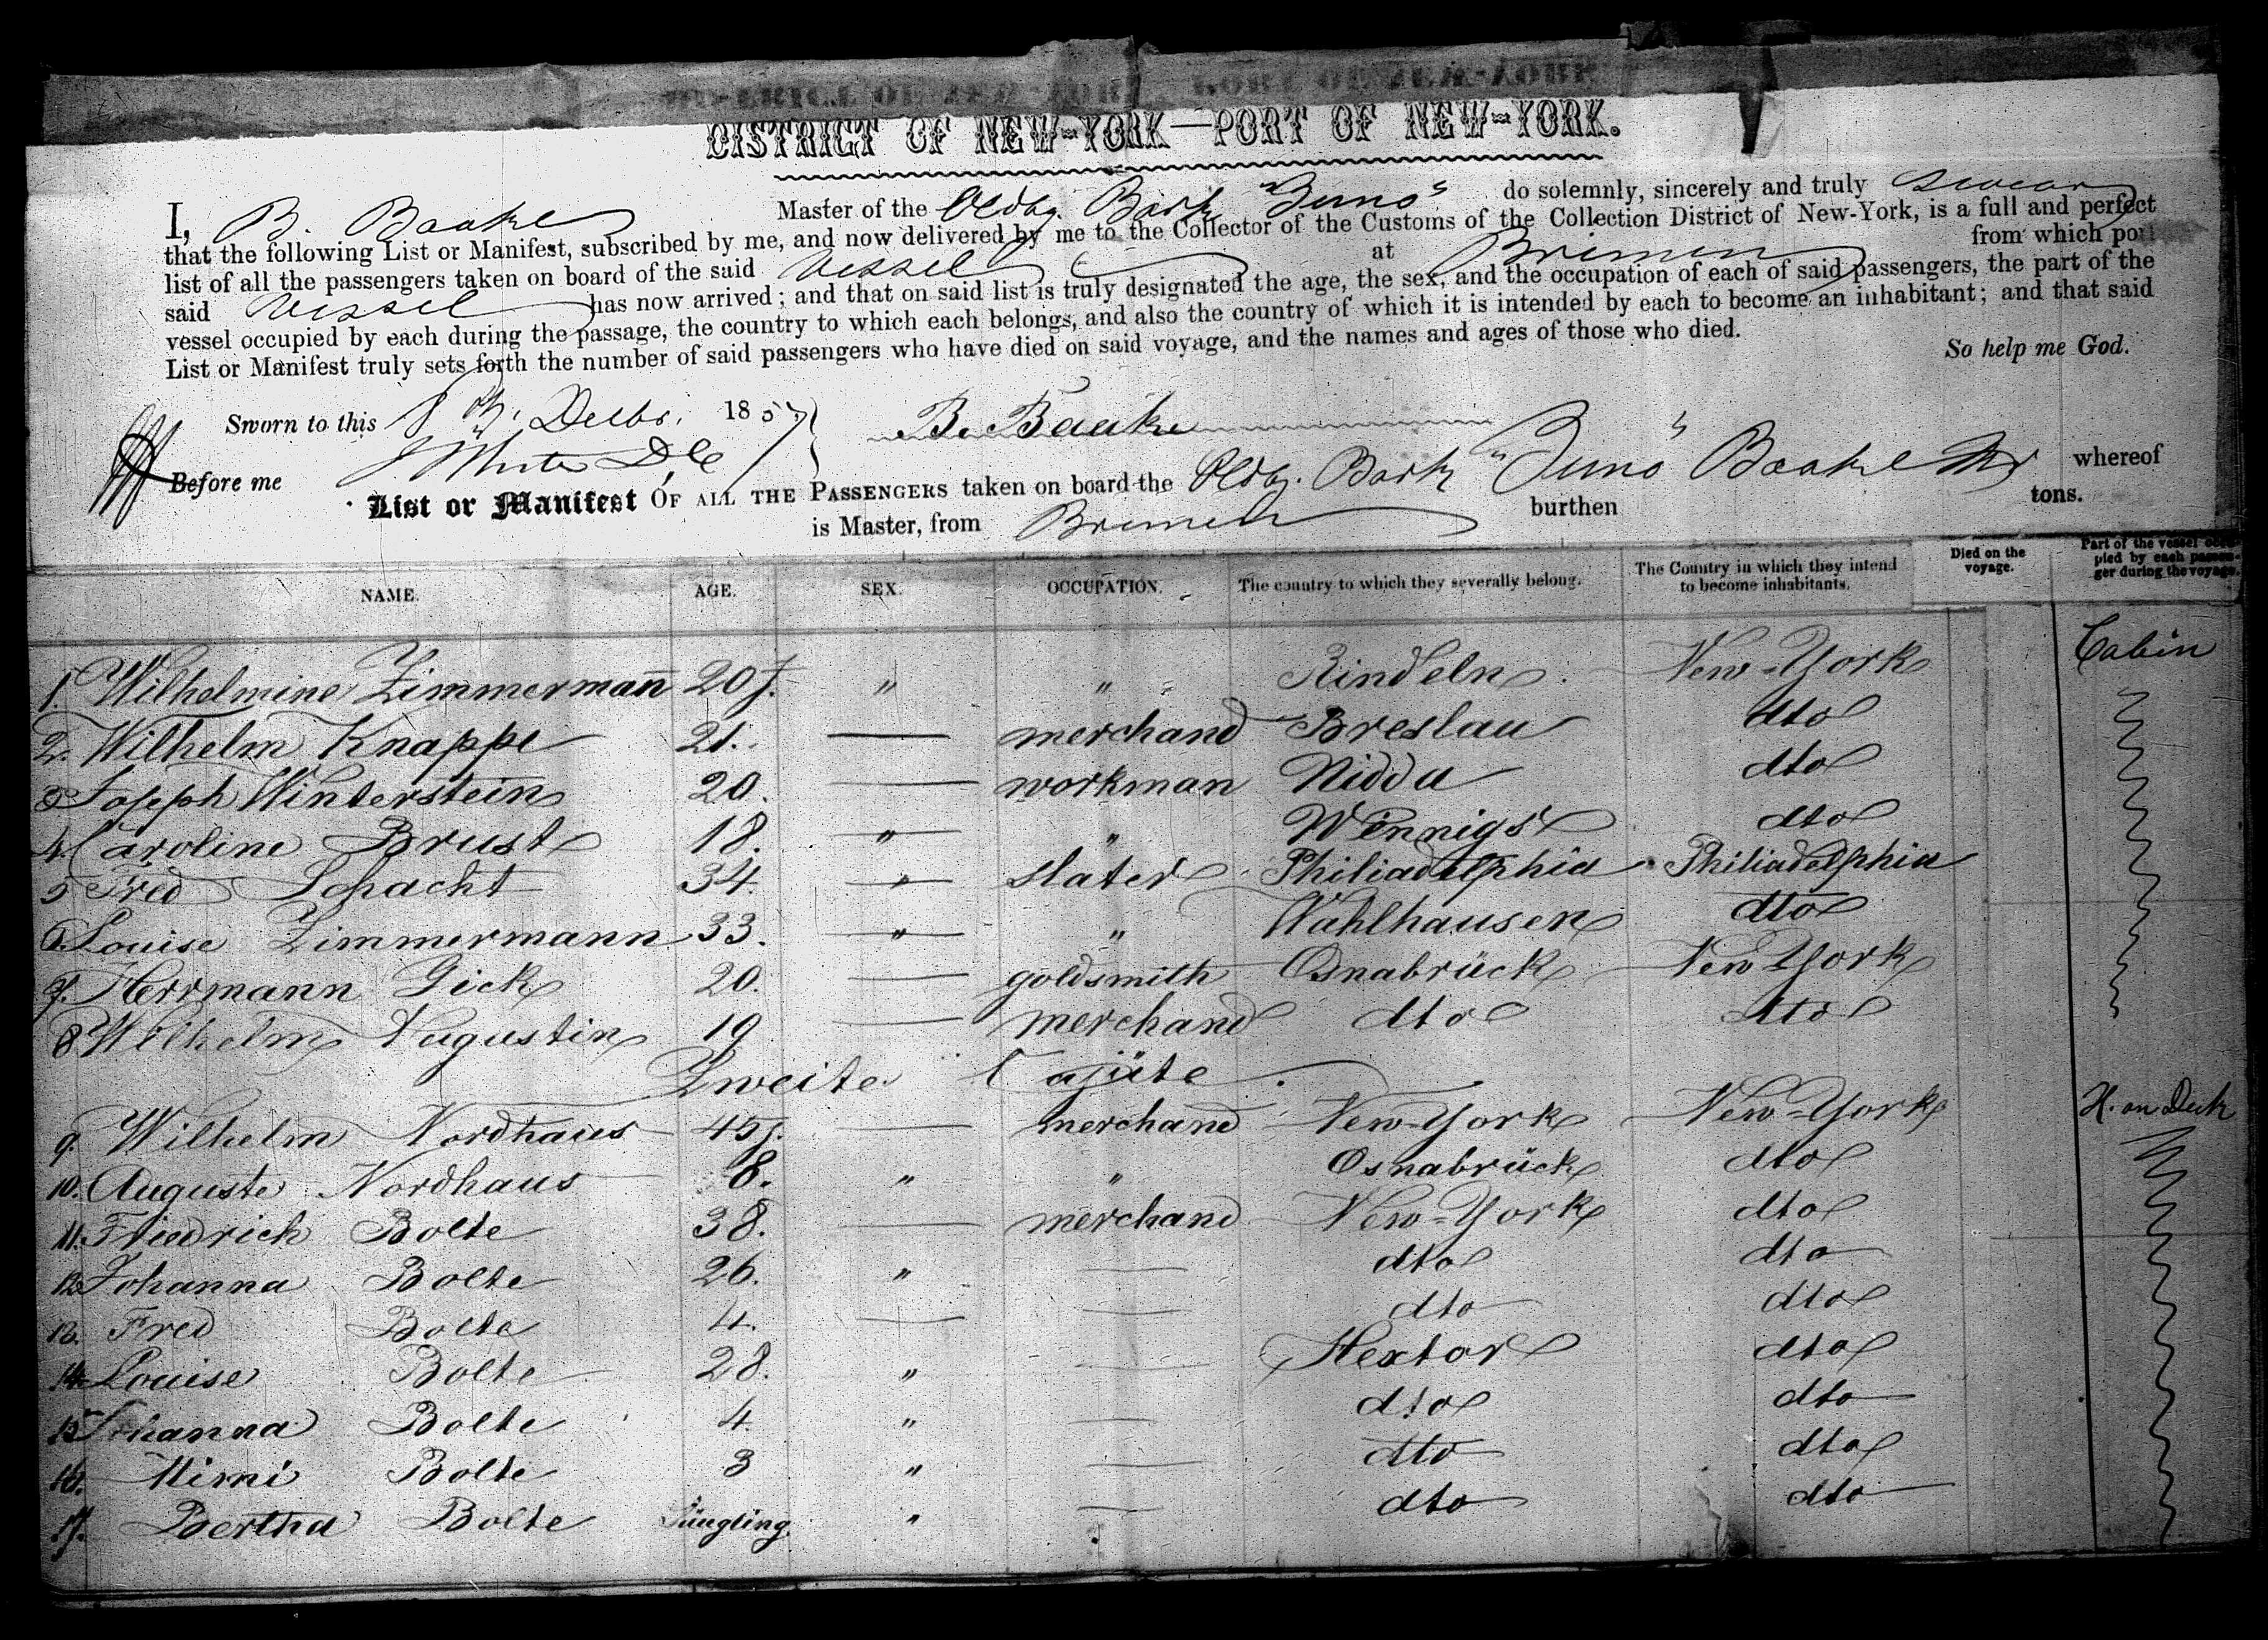 DISTRICT OF NEW-YORK—PORT OF NEW-YORK.
I, B. Baake Master of the Oldbg. Bark "Juno" do solemnly, sincerely and truly swear
that the following List or Manifest, subscribed by me, and now delivered by me to the Collector of the Customs of the Collection District of New-York, is a full and perfect
list of all the passengers taken on board of the said Vessel at Bremen from which port
said Vessel has now arrived; and that on said list is truly designated the age, the sex, and the occupation of each of said passengers, the part of the
vessel occupied by each during the passage, the country to which each belongs, and also the country of which it is intended by each to become an inhabitant; and that said
List or Manifest truly sets forth the number of said passengers who have died on said voyage, and the names and ages of those who died.
So help me God.
Sworn to this 8th. Decbr. 1857 B. Baake
Before me
List or Manifest OF ALL THE PASSENGERS taken on board the Oldbg. Bark "Juno" Baake Mr whereof
is Master, from Bremen burthen tons.
NAME. AGE. SEX. OCCUPATION. The country to which they severally belong. The Country in which they intend to become inhabitants. Died on the voyage. Part of the vessel occupied by each passenger during the voyage.
1. Wilhelmine Zimmermañ 20 J. " " Rindeln New-York Cabin
2. Wilhelm Knappe 21. — merchand Breslau dto
3 Joseph Winterstein 20. — workman Nidda dto
4. Caroline Brust 18. " " Wennigs dto
5 Fred Schacht 34. " slater Philiadelphia Philiadelphia
6. Louise Zimmermann 33. " " Wahlhausen dto
7. Herrmann Gick 20. — goldsmith Osnabrück New-York
8 Wilhelm Augustin 19 — merchand dto dto
Zweite Cajüte.
9. Wilhelm Nordhaus 45 J. — merchand New-York New-York H. on Deck
10. Auguste Nordhaus 8. " " Osnabrück dto
11. Friedrich Bolte 38. — merchand New-York dto
12. Johanna Bolte 26. " — dto dto
13. Fred Bolte 4. — — dto dto
14. Louise Bolte 28. " — Hextor dto
15 Johanna Bolte 4 " — dto dto
16. Mimi Bolte 3 " — dto dto
17. Bertha Bolte Säugling. " — dto dto